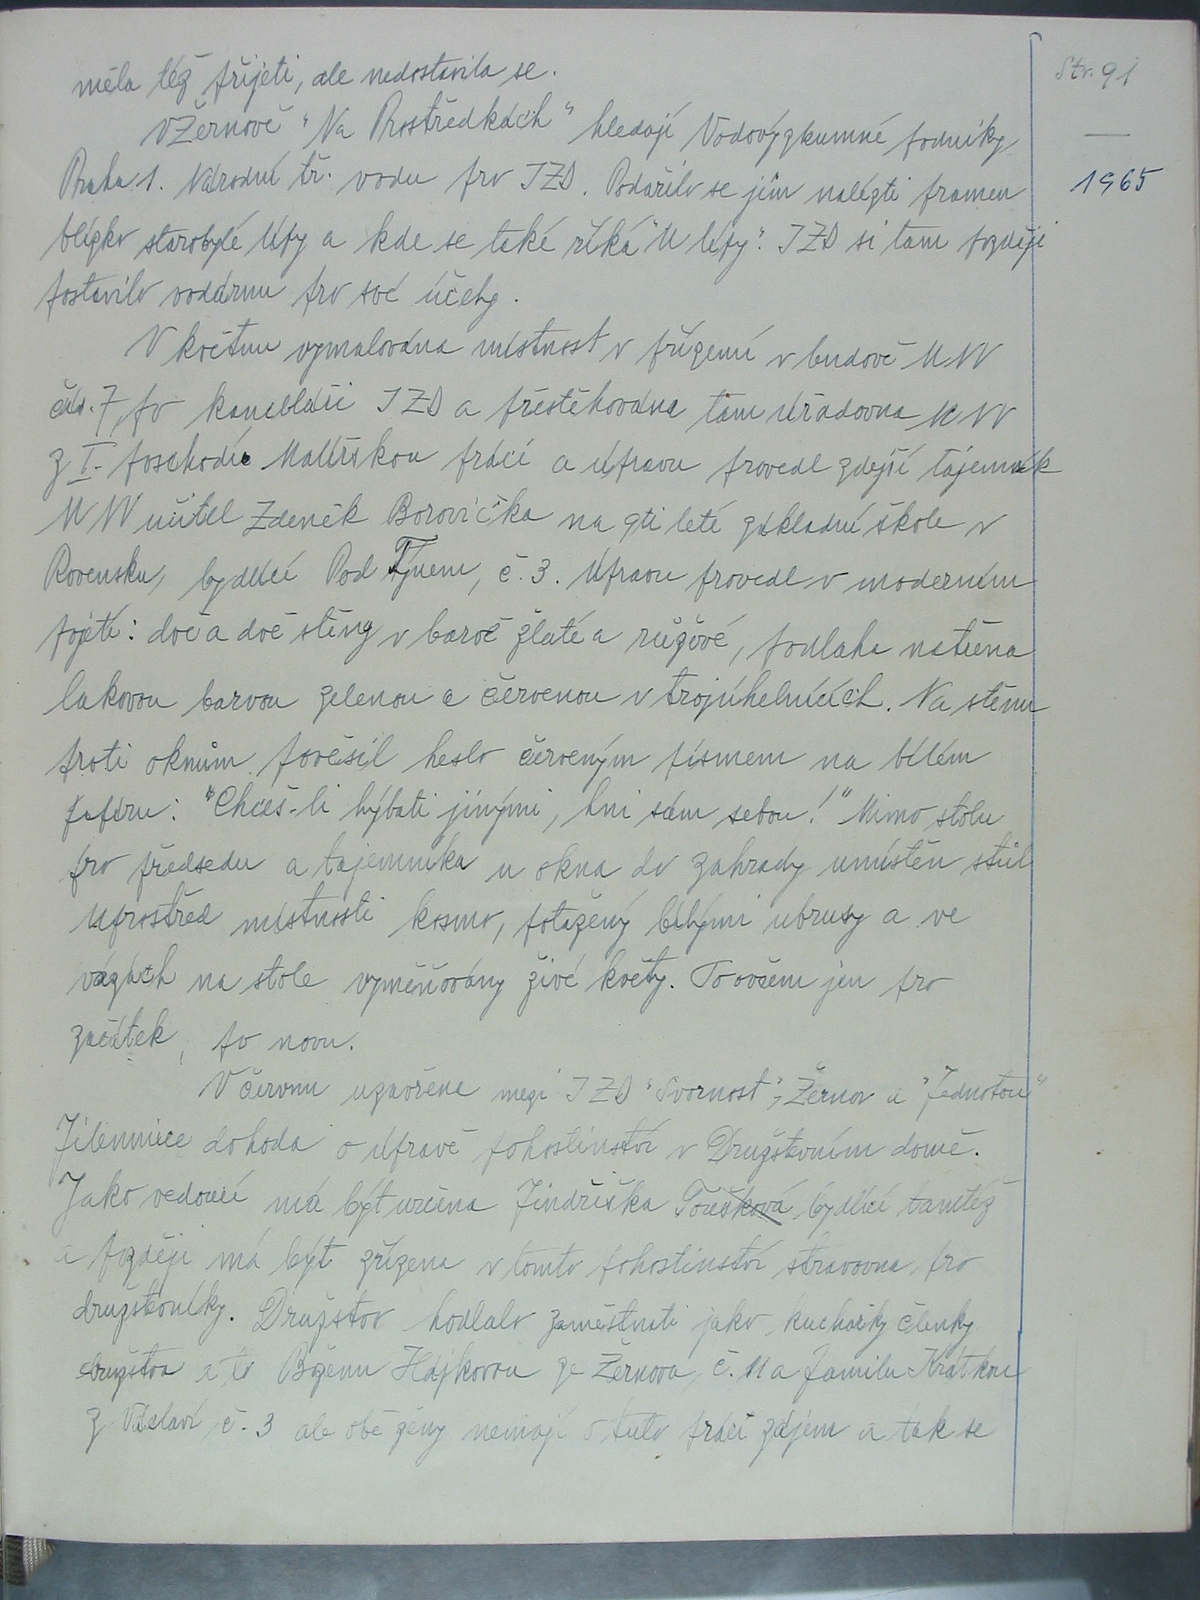 Str. 91
1965
měla též přijeti, ale nedostavila se.
V Žernově "Na Prostředkách" hledají Vodovýzkumné podniky
Praha 1. Národní tř. vodu pro JZD. Podařilo se jim nalézti pramen
blízko starobylé lípy a kde se také říká "U lípy". JZD si tam později
postavilo vodárnu pro své účely.
V květnu vymalována místnost v přízemí v budově MNV
čís. 7, po kanceláři JZD a přestěhována tam úřadovna MNV
z I. poschodí. Malířskou práci a úpravu provedl zdejší tajemník
MNV učitel Zdeněk Borovička na 9ti leté základní škole v
Rovensku, bydlící Pod Týnem, č. 3. Úpravu provedl v moderním
pojetí: dvě a dvě stěny v barvě žluté a růžové, podlaha natřena
lakovou barvou zelenou a červenou v trojúhelnících. Na stěnu
proti oknům pověsil heslo červeným písmem na bílém
papíru: "Chceš-li hýbati jinými, hni sám sebou!" Mimo stolu
pro předsedu a tajemníka u okna do zahrady umístěn stůl
uprostřed místnosti kosmo, potažený bílými ubrusy a ve
vázách na stole vyměňovány živé květy. To ovšem jen pro
začátek, po novu.
V červnu uzavřena mezi JZD "Svornost", Žernov a "Jednotou"
Jilemnice dohoda o úpravě pohostinství v Družstevním domě.
Jako vedoucí má být určena Jindřiška Toušková bydlící tamtéž
a později má být zřízena v tomto pohostinství stravovna pro
družstevníky. Družstvo hodlalo zaměstnati jako kuchařky členky
družstva a to Boženu Hájkovou ze Žernova, č. 11 a Jamilu Krátkou
z Václaví, č. 3 ale obě ženy nemají o tuto práci zájem a tak se